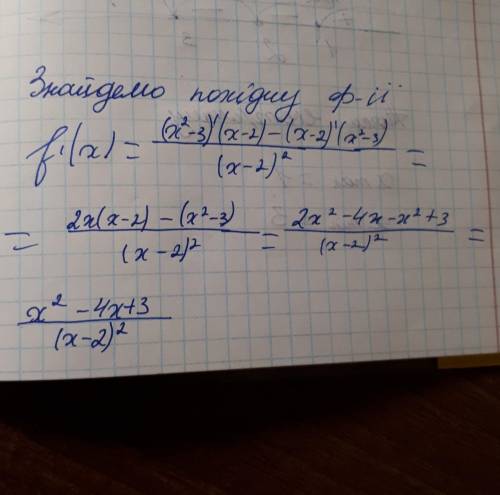 Знайдемо похідну ф-ії
f'(x) = \frac{(x²-3)'(x-2) - (x-2)'(x²-3)}{(x-2)²} =
= \frac{2x(x-2) - (x²-3)}{(x-2)²} = \frac{2x² - 4x - x² + 3}{(x-2)²} =
\frac{x² - 4x + 3}{(x-2)²}